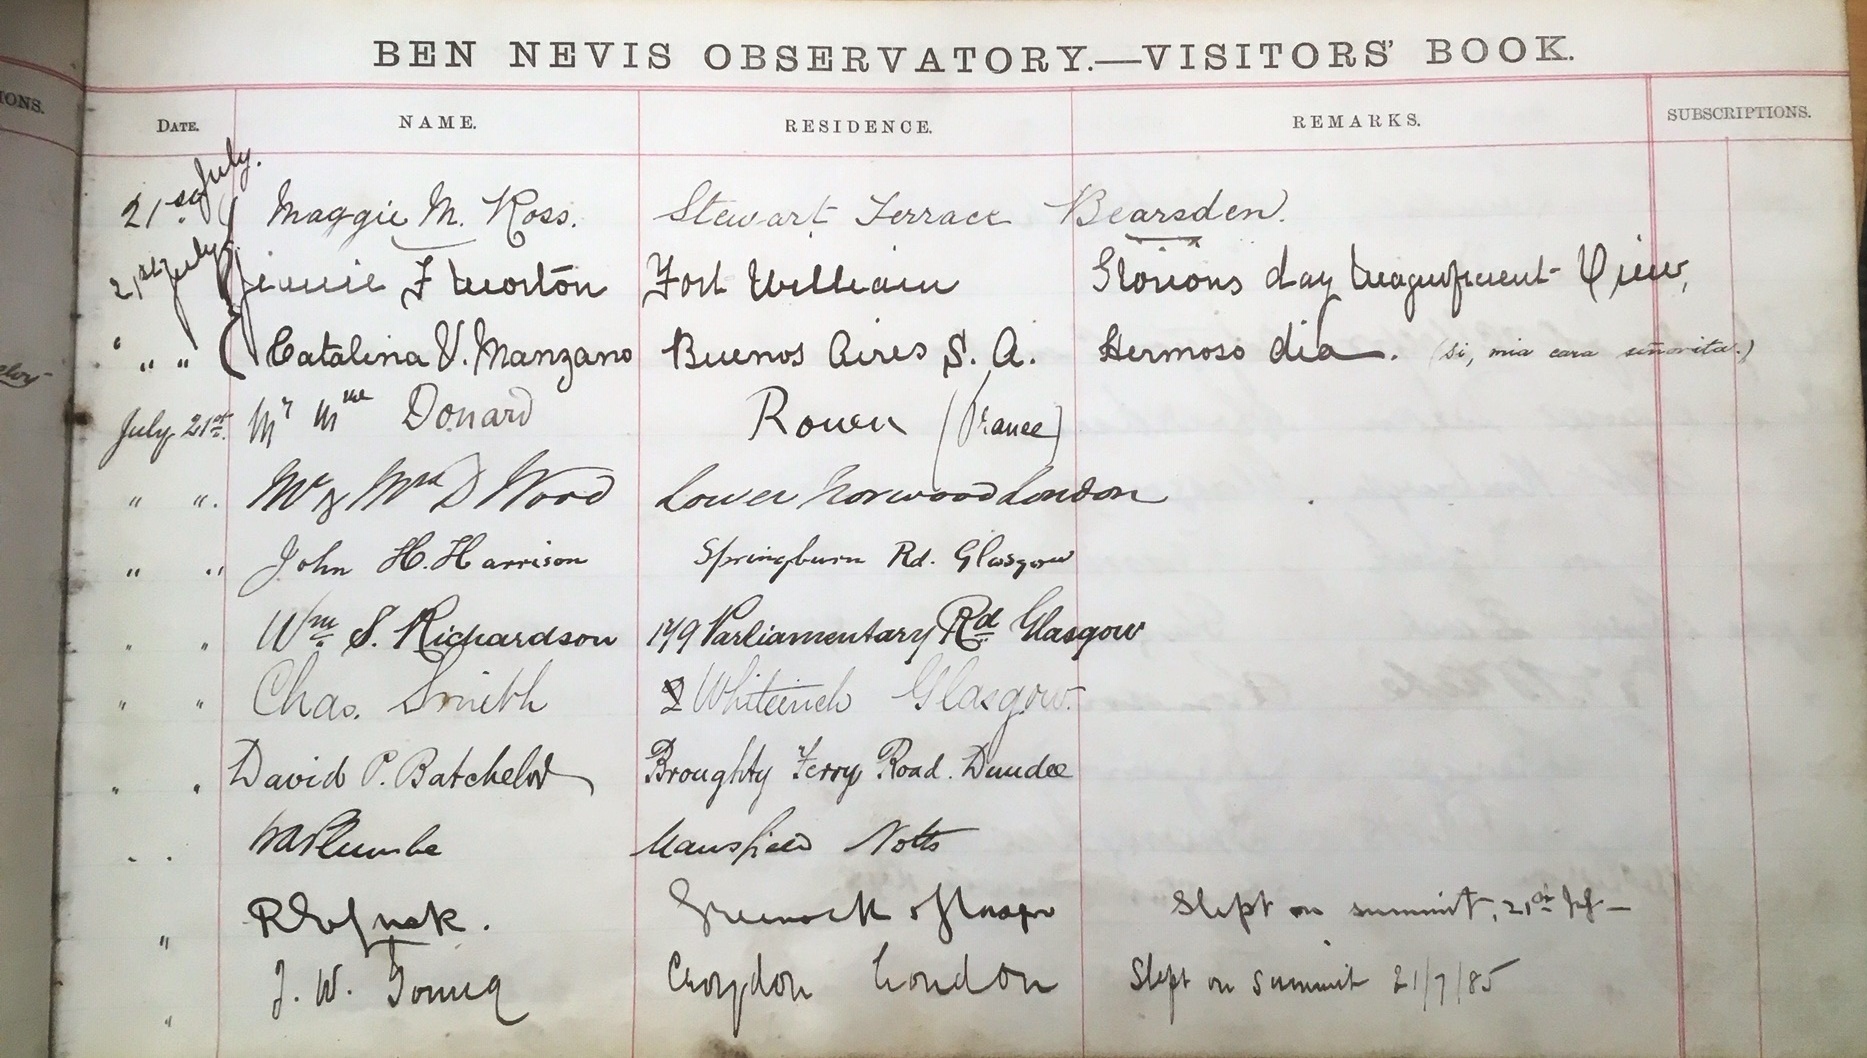 IONS.
BEN NEVIS OBSERVATORY.—VISITORS' BOOK.
DATE. NAME. RESIDENCE. REMARKS. SUBSCRIPTIONS.
21st July. Maggie M. Ross. Stewart Terrace Bearsden.
21st July Jennie F Morton Fort William Glorious day Magnificent View,
" " " Catalina V. Manzano Buenos Aires S. A. Hermoso dia. (si, mia cara señorita.)
July 21st. Mr Mme Donard Rouen (France)
" ". Mr & Mrs D Wood Lower Norwood London
" " John H. Harrison Springburn Rd. Glasgow
" " Wm S. Richardson 179 Parliamentary Rd Glasgow
" " Chas. Smith Whiteinch Glasgow.
" " David P. Batchelor Broughty Ferry Road. Dundee
" " Plumbe Mansfield Notts
" Greenock Glasgow Slept on summit, 21st
" J. W. Young Croydon London Slept on Summit 21/7/85